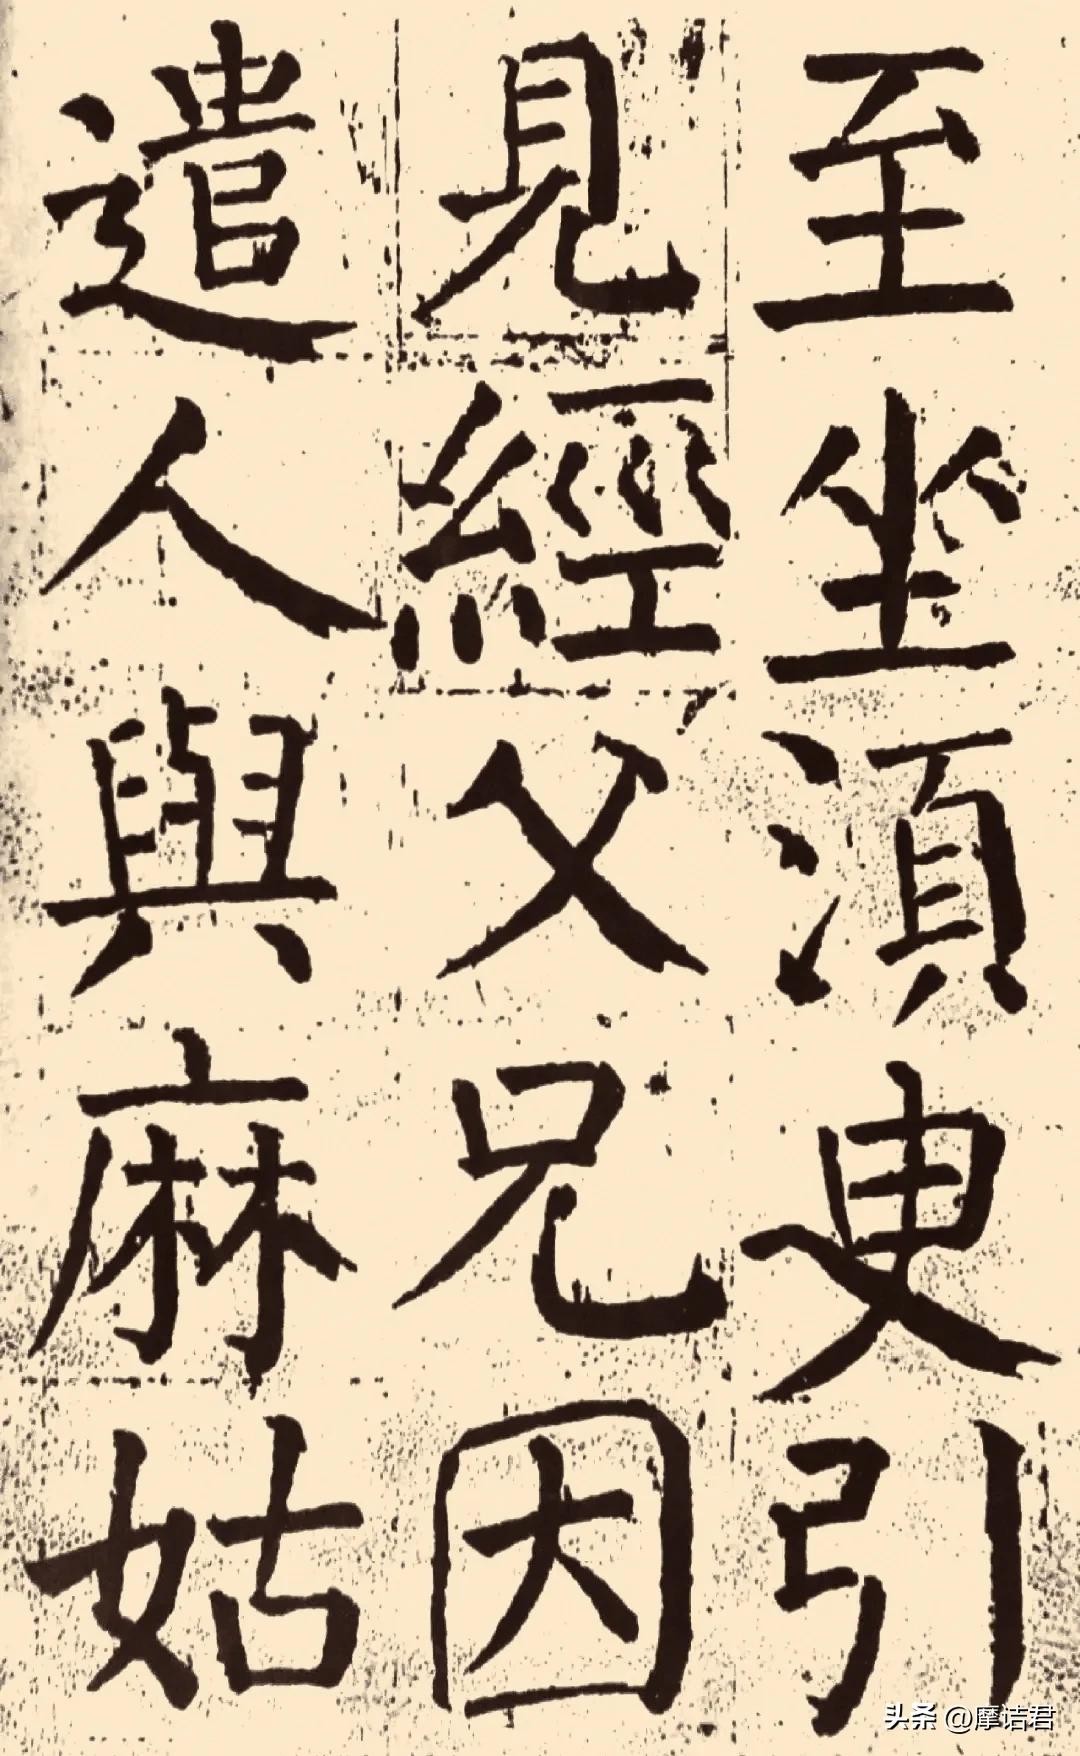 至坐湏㪅引
見經父兄因
遣人與麻姑
头条 @摩诘君